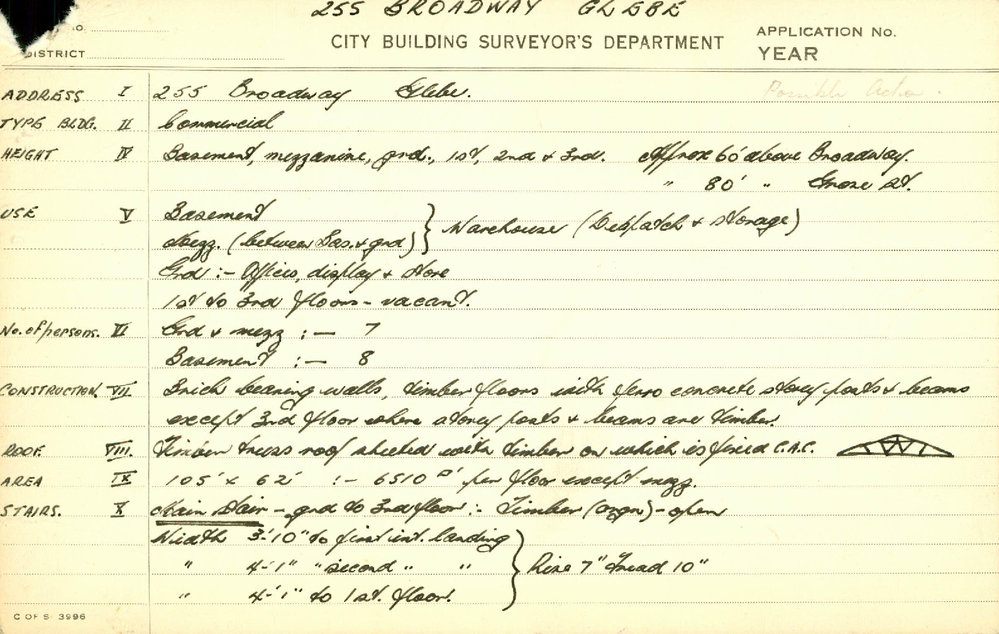 255 BROADWAY GLEBE
No.
DISTRICT
CITY BUILDING SURVEYOR'S DEPARTMENT
APPLICATION No.
YEAR
ADDRESS I 255 Broadway Glebe. Possible Action.
TYPE BLDG. II Commercial
HEIGHT IV Basement, mezzanine, grd., 1st, 2nd & 3rd. Approx 60' above Broadway.
" 80' " Grose St.
USE V Basement
Mezz. (between Bas. & grd) } Warehouse (Despatch & storage)
Grd :- Offices, display & store
1st to 3rd floors - vacant.
No. of persons. VI Grd & mezz :- 7
Basement :- 8
CONSTRUCTION. VII Brick bearing walls, timber floors with ferro concrete storey posts & beams
except 3rd floor where storey posts & beams are timber.
ROOF. VIII. Timber truss roof sheeted with timber on which is fixed C.A.C.
AREA IX 105' x 62' :- 6510 □' per floor except mezz.
STAIRS. X Main Stair - grd to 3rd floor :- Timber (orgn) - open
Width 3'-10" to first int. landing
" 4'-1" " second " " } Rise 7" Tread 10"
" 4'-1" to 1st. floor.
C OF S 3996